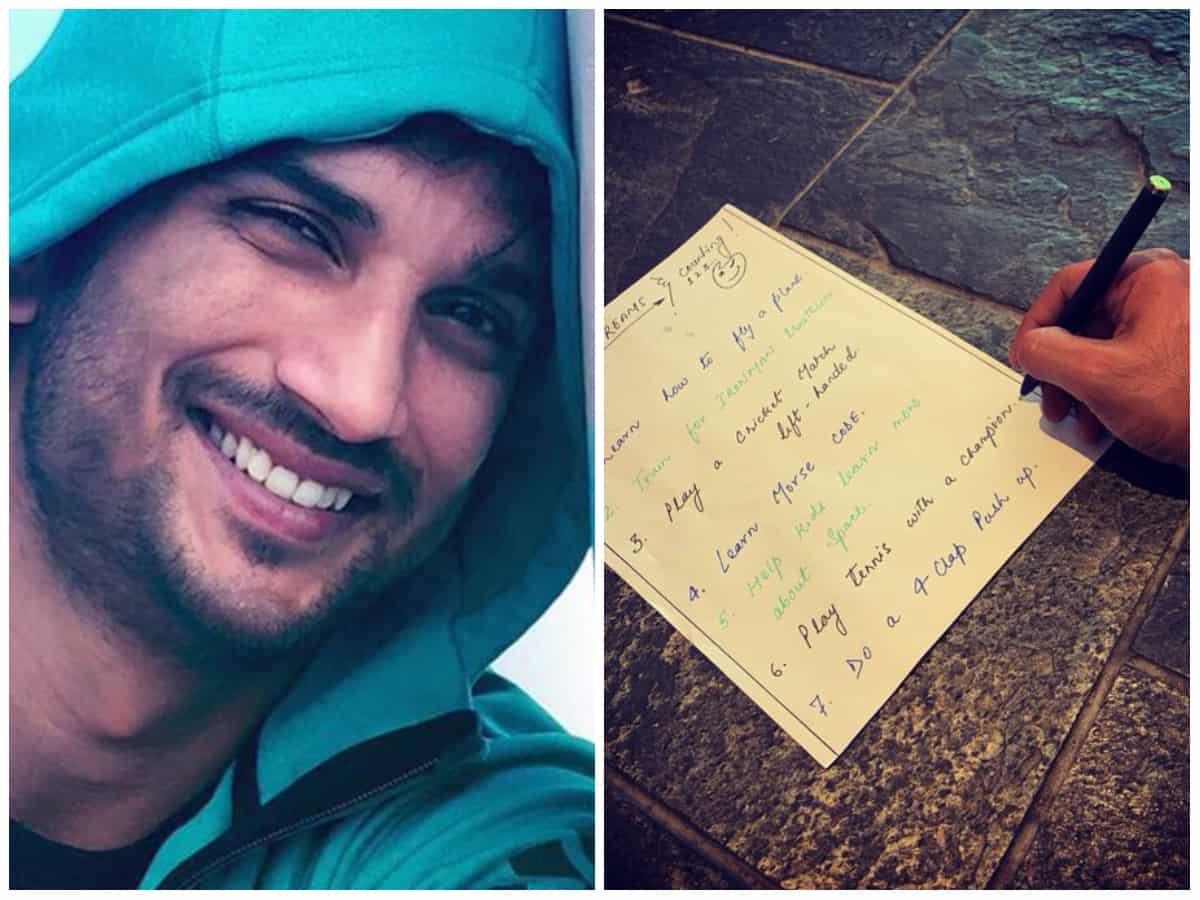 REAMS & counting!
1 2 3
Learn how to fly a plane.
2. Train for IRONMAN triathlon
3. Play a cricket Match
left-handed.
4. Learn Morse CODE.
5. Help kids learn more
about Space.
6. Play Tennis with a champion.
7. Do a 4 clap Push up.